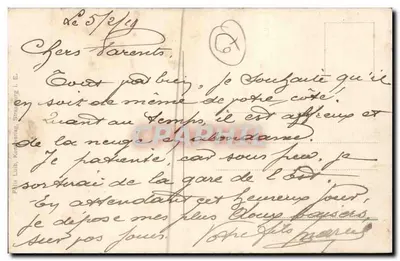 Le 5/2/19
Chers Parents.
Tout va bien, je souhaite qu'il
en soit de même de votre côté.
Quant au temps, il est affreux et
de la neige en abondance.
Je patiente, car sous peu, je
sortirai de la gare de l'Est.
En attendant cet heureux jour,
je dépose mes plus doux baisers
sur vos joues. Votre fils
Marcel